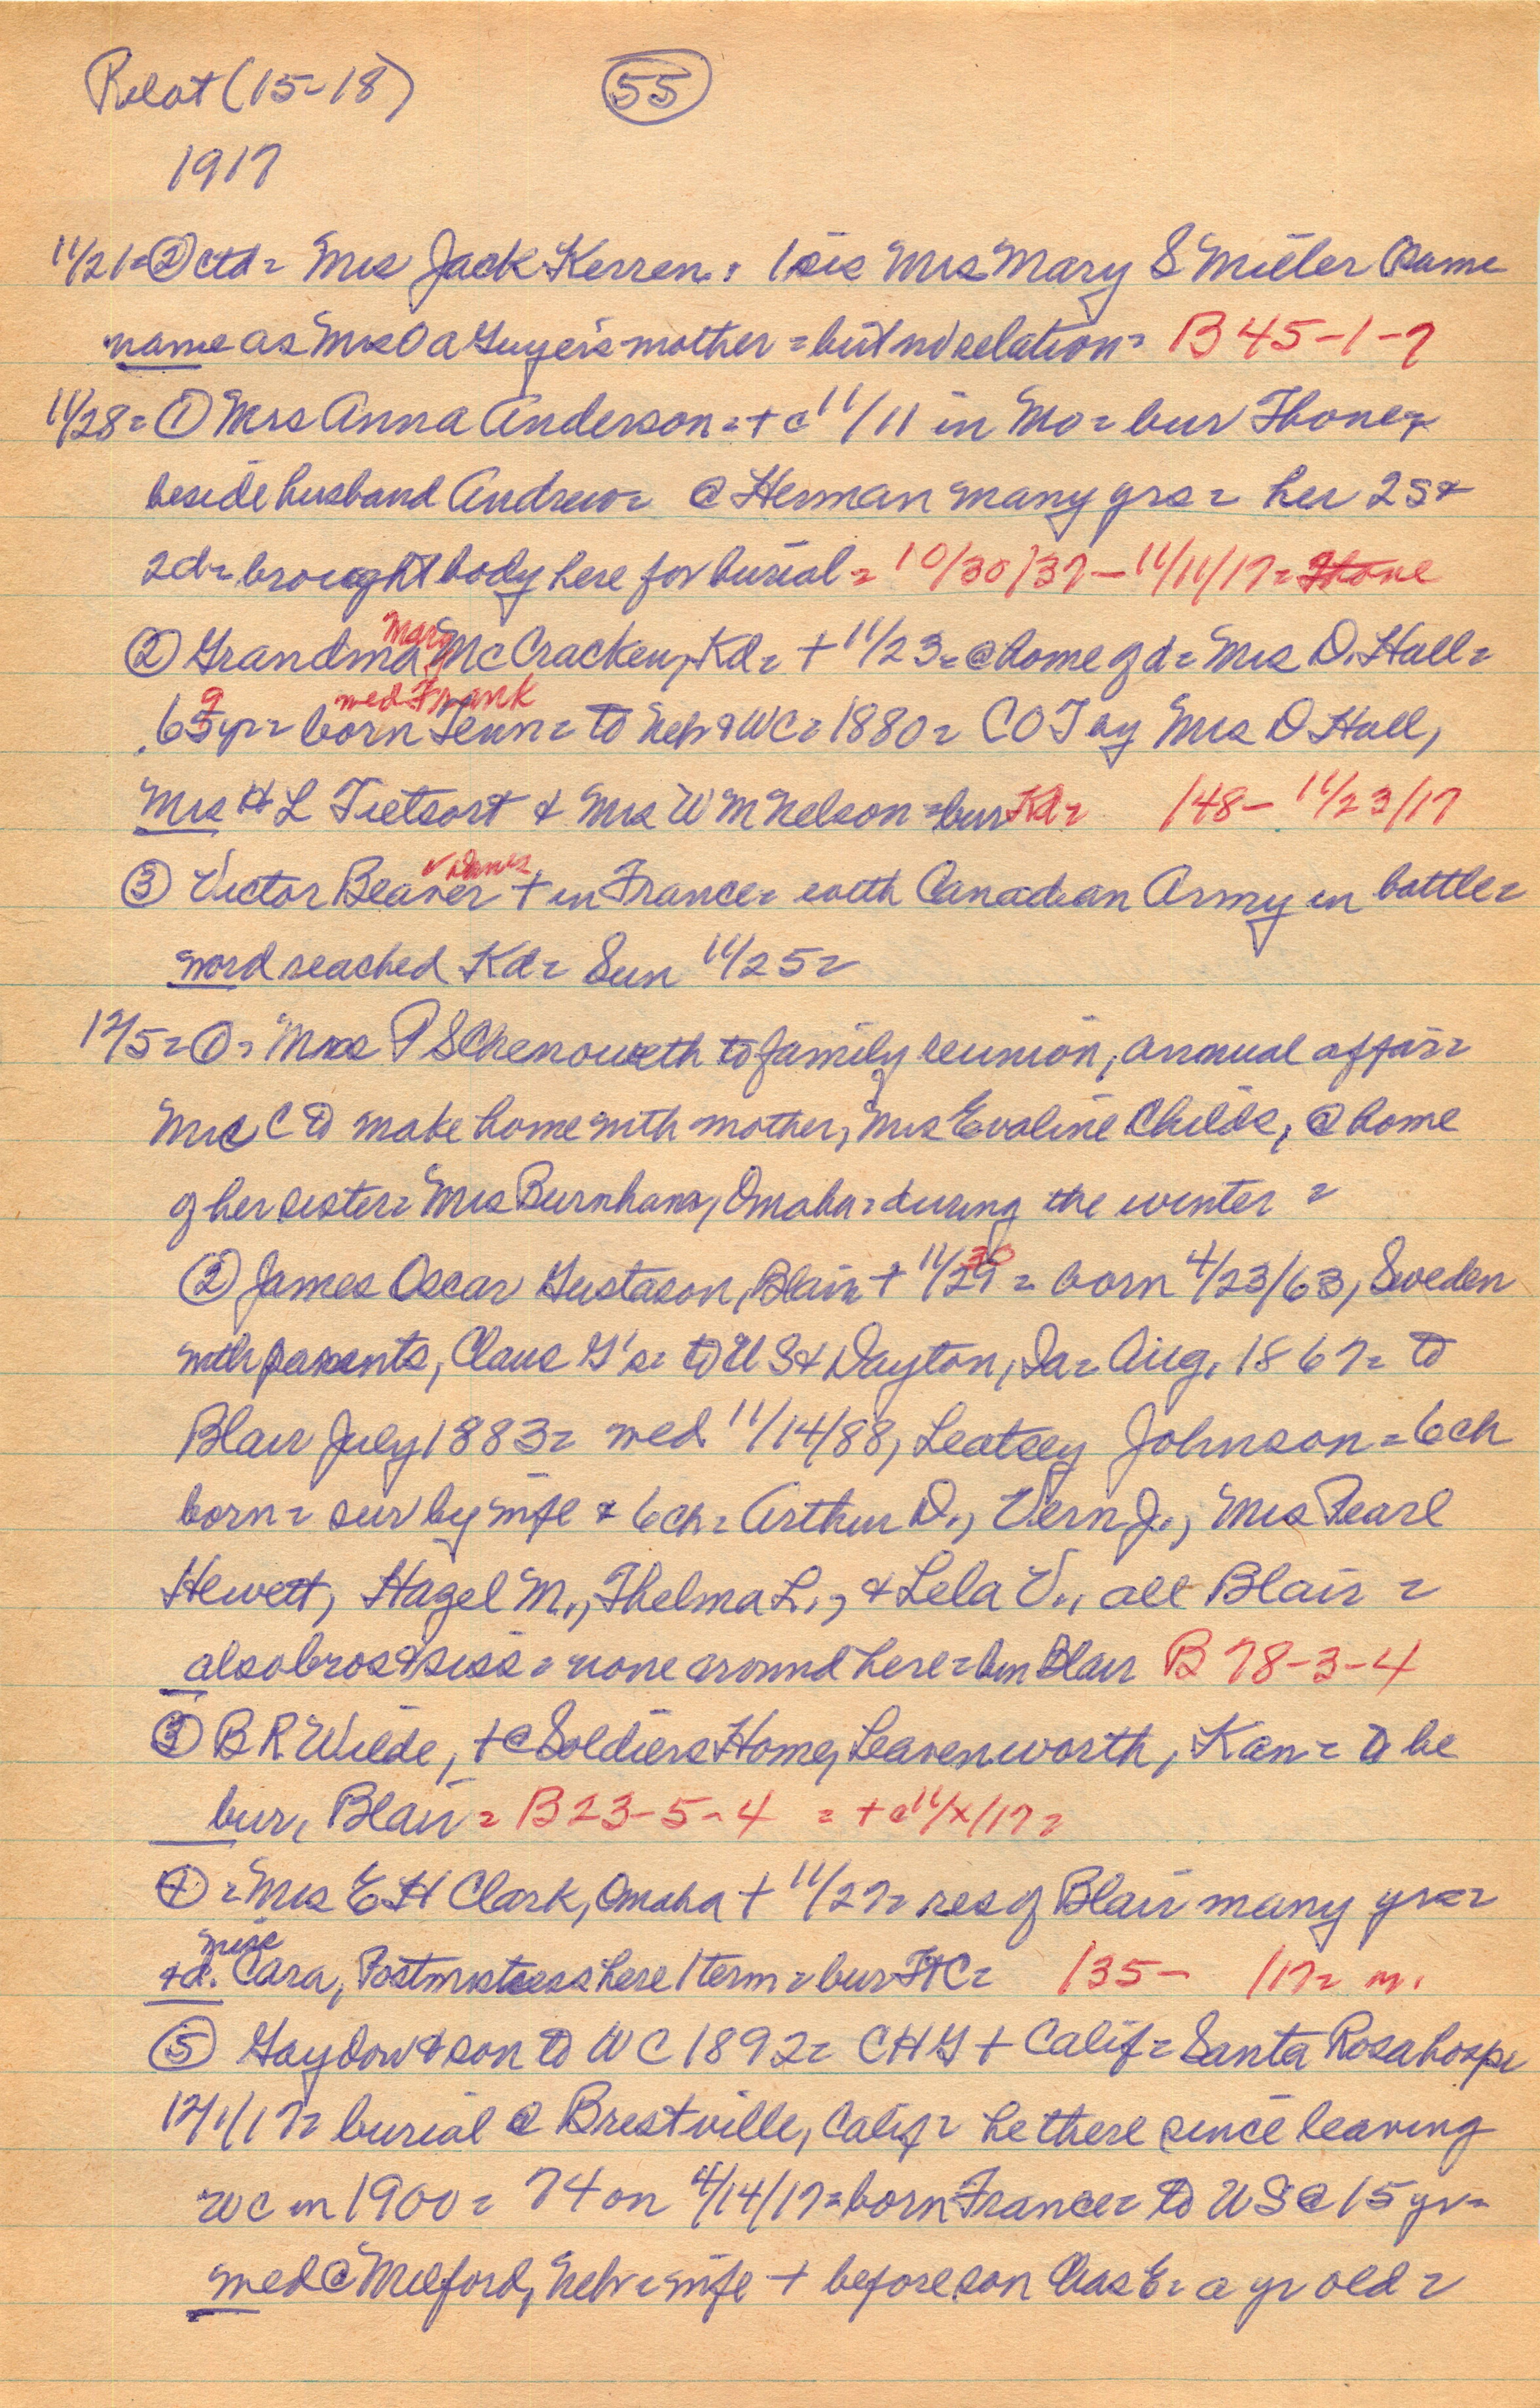 Relat (15-18) 55
1917
11/21= ② ctd= Mrs Jack Kerren: 1 sis Mrs Mary S Miller (Same
name as Mrs O a Guyer's mother = but no relation= B 45-1-7
11/28= ① Mrs Anna Anderson= + c 11/11 in Mo= bur Fhone=
beside husband Andrew= @ Herman many yrs= her 2s+
2d= brought body here for burial= 10/30/37-11/11/17=
② Grandma Mary McCracken, Kd= + 11/23= @ home of d= Mrs D. Hall=
659 yr= med Frank born Tenn= to Neb & WC= 1880= COT ay Mrs D Hall,
Mrs H L Tietsort & Mrs W M Nelson= bur Kd= 148- 11/23/17
③ Victor Beaver + in France= with Canadian Army in battle=
word reached Kd= Sun 11/25=
12/5= ①= Mrs P S Chenoweth to family reunion, annual affair=
Mrs C to make home with mother, Mrs Evaline Childs, @ home
of her sister= Mrs Burnham, Omaha= during the winter =
② James Oscar Gustason, Blair + 11/29 30 = born 4/23/63, Sweden
with parents, Claus G's= to US & Dayton, Ia= Aug. 1867= to
Blair July 1883= med 11/14/88, Leatsey Johnson= 6 ch
born= sur by wife & 6 ch= Arthur D., Vern J., Mrs Pearl
Hewett, Hazel M., Thelma L., & Lela V., all Blair =
also bros & siss= none around here= bur Blair B 78-3-4
③ B R Wilde, + @ Soldiers Home, Leavenworth, Kan= to be
bur, Blair= B 23-5-4 = + c 11/x/17=
④= Mrs E H Clark, Omaha + 11/27= res of Blair many yrs=
+d. Miss Cara, Postmistress here 1 term= bur FtC= 135- /17= m.
⑤ Gaydow & son to WC 1892= CHG + Calif= Santa Rosa hosp=
12/1/17= burial @ Brestville, Calif= he there since leaving
WC in 1900= 74 on 4/14/17= born France= to US @ 15 yr=
med @ Milford, Neb= wife + before son Chas E= a yr old=